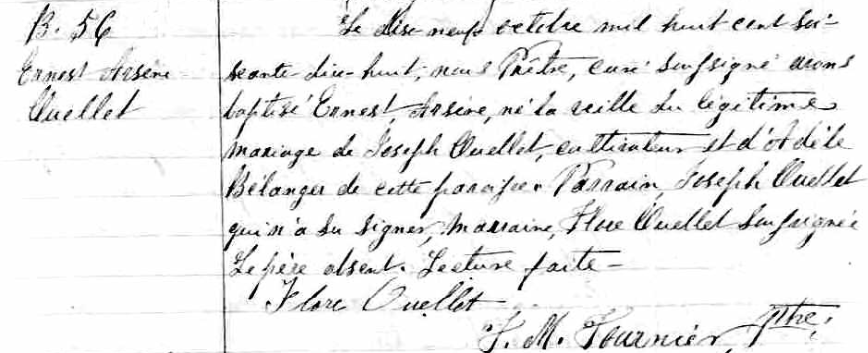 B. 56
Ernest Arsène
Ouellet
Le dix-neuf octobre mil huit cent soi-
xante dix-huit, nous Prêtre, curé soussigné avons
baptisé Ernest, Arsène, né la veille du légitime
mariage de Joseph Ouellet, cultivateur et d'Adèle
Bélanger de cette paroisse. Parrain, Joseph Ouellet
qui n'a su signer, marraine, Flore Ouellet soussignée
Le père absent. Lecture faite -
Flore Ouellet
J. M. Fournier, Ptre.